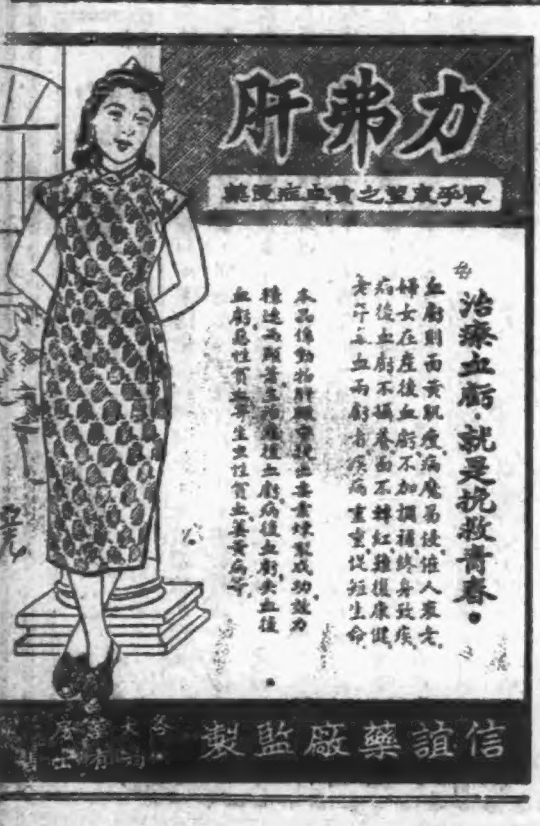 力弗肝
孚眾望之貧血症良藥
治療血虧·就是挽救青春·
血虧則面黃肌瘦,病魔易侵,催人衰老,
婦女在產後血虧,不加調補,終身致疾,
病後血虧不攝養,面不轉紅,難復康健,
老年氣血兩虧者,疾病重重,促短生命,
本品係動物肝臟中提出要素煉製成功,效力
穩速而顯著,主治產後血虧,病後血虧,失血後
血虧,惡性貧血,寄生虫性貧血,萎黃病等,
信誼藥廠監製
各大藥房
均有出售